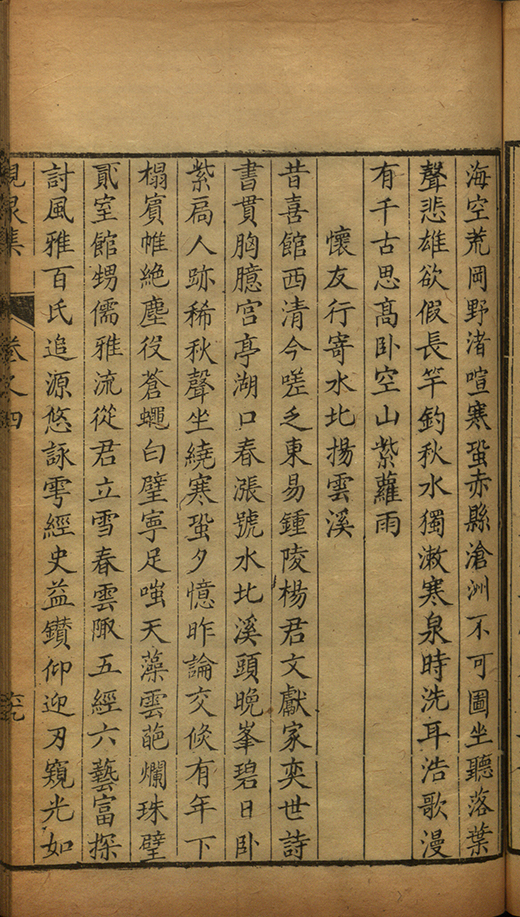 海空荒岡野渚喧寒蛩赤縣滄洲不可圖坐聽落葉
聲悲雄欲假長竿釣秋水獨漱寒泉時洗耳浩歌漫
有千古思髙臥空山紫蘿雨
懷友行寄水北揚雲溪
昔喜館西清今嗟乏東易鍾陵楊君文獻家奕世詩
書貫胸臆宮亭湖口春漲號水北溪頭晚峯碧日臥
紫扄人跡稀秋聲坐繞寒蛩夕憶昨論交候有年下
榻賓帷絶塵役蒼蠅白璧寧足嗤天藻雲葩爛珠璧
貳室館甥儒雅流從君立雪春雲陬五經六藝富探
討風雅百氏追源悠詠雩經史益鑚仰迎刃窺光如
峴泉集 卷之四